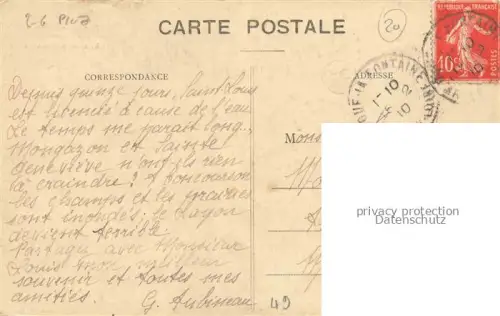 2-6 Piva
20
CARTE POSTALE
RÉPUBLIQUE FRANÇAISE
10c
POSTES
CORRESPONDANCE
ADRESSE
Depuis quinze jours, Saint Louis
est licencié à cause de l'eau.
Le temps me parait long.
Mongazon et Sainte
Geneviève n'ont-ils rien
à craindre? A Concourson
les champs et les
sont inondés, le Layon
devient terrible.
Partagez avec Monsieur
Louis mon meilleur
souvenir et toutes mes
amitiés.
G. Aubineau
49
Mons
privacy protection
Datenschutz